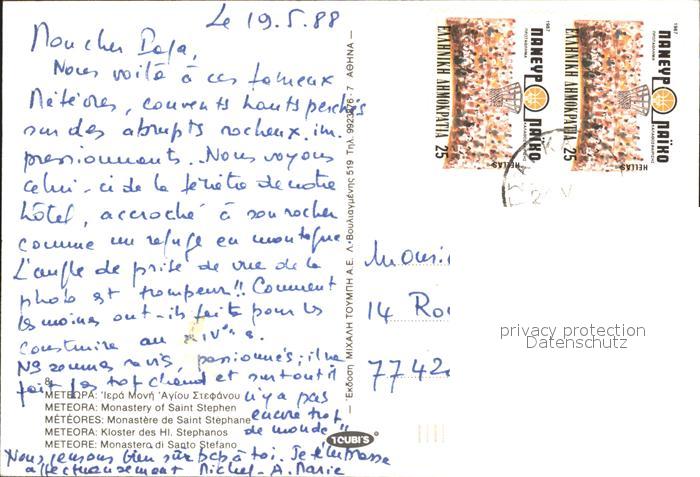 Le 19.5.88
Mon cher Papa,
Nous voilà à ces fameux
Météores, couvents hauts perchés
sur des abrupts rocheux im-
pressionnants. Nous voyons
celui-ci de la fenêtre de notre
hôtel, accroché à son rocher
comme un refuge en montagne
L'angle de prise de vue de la
photo est trompeur!! Comment
les moines ont-ils fait pour les
construire au XIVe s.
Ns sommes ravis, passionnés; il ne
fait pas trop chaud et surtout il
n'y a pas
encore trop
de monde!!
Nous pensons bien sûr bcp à toi. Je t'embrasse
affectueusement Michel-A. Marie
8
ΜΕΤΕΩΡΑ: Ἱερά Μονή Ἁγίου Στεφάνου
METEORA: Monastery of Saint Stephen
MÉTÉORES: Monastère de Saint Stephane
METEORA: Kloster des Hl. Stephanos
METEORE: Monastero di Santo Stefano
Ἔκδοση: ΜΙΧΑΛΗ ΤΟΥΜΠΗ Α.Ε. Λ. Βουλιαγμένης 519 Τηλ. 9923876-7 ΑΘΗΝΑ
TOUBI'S
1987
ΠΑΝΕΥΡ
ΠΑΪΚΟ
ΕΛΛΗΝΙΚΗ ΔΗΜΟΚΡΑΤΙΑ 25
HELLAS
1987
ΠΑΝΕΥΡ
ΠΑΪΚΟ
ΕΛΛΗΝΙΚΗ ΔΗΜΟΚΡΑΤΙΑ 25
HELLAS
Monsi
14 Ro
7742
privacy protection
Datenschutz